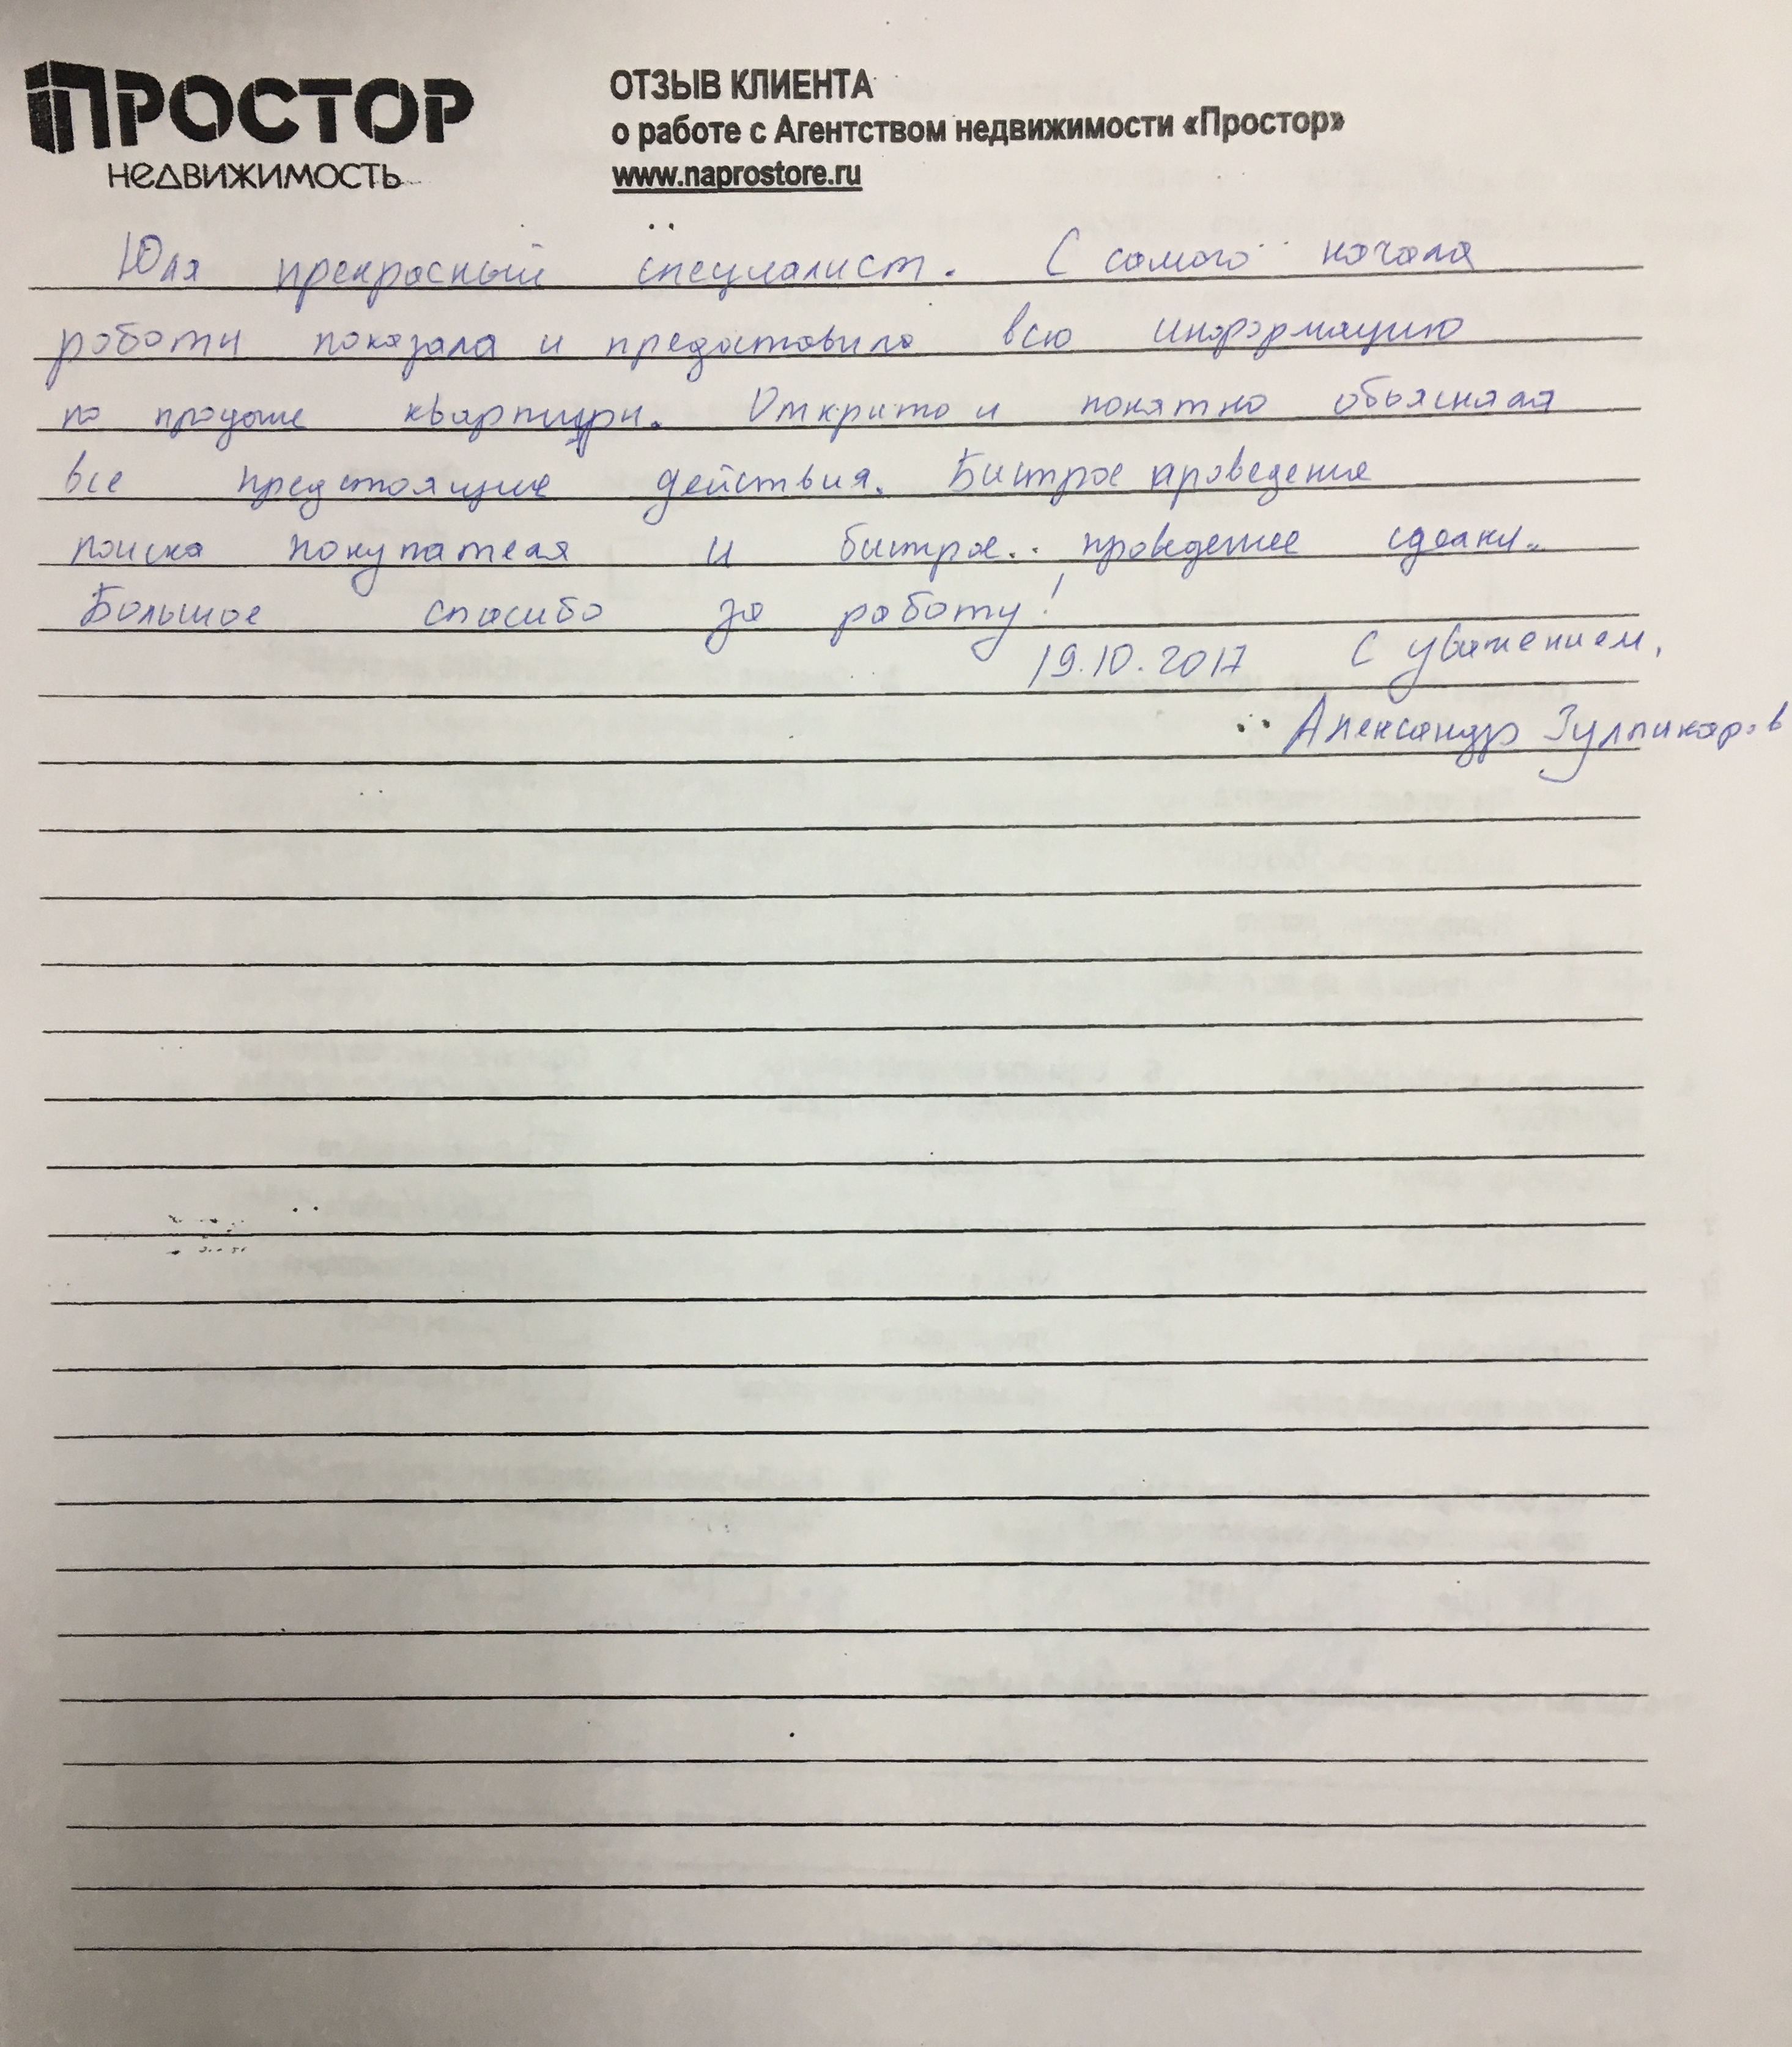 ПРОСТОР
НЕДВИЖИМОСТЬ
ОТЗЫВ КЛИЕНТА
о работе с Агентством недвижимости «Простор»
www.naprostore.ru
Юля прекрасный специалист. С самого начала
работы показала и предоставила всю информацию
по продаже квартиры. Открыто и понятно объясняла
все предстоящие действия. Быстрое проведение
поиска покупателя и быстрое проведение сделки.
Большое спасибо за работу!
19.10.2017 С уважением,
Александр Зулпикаров